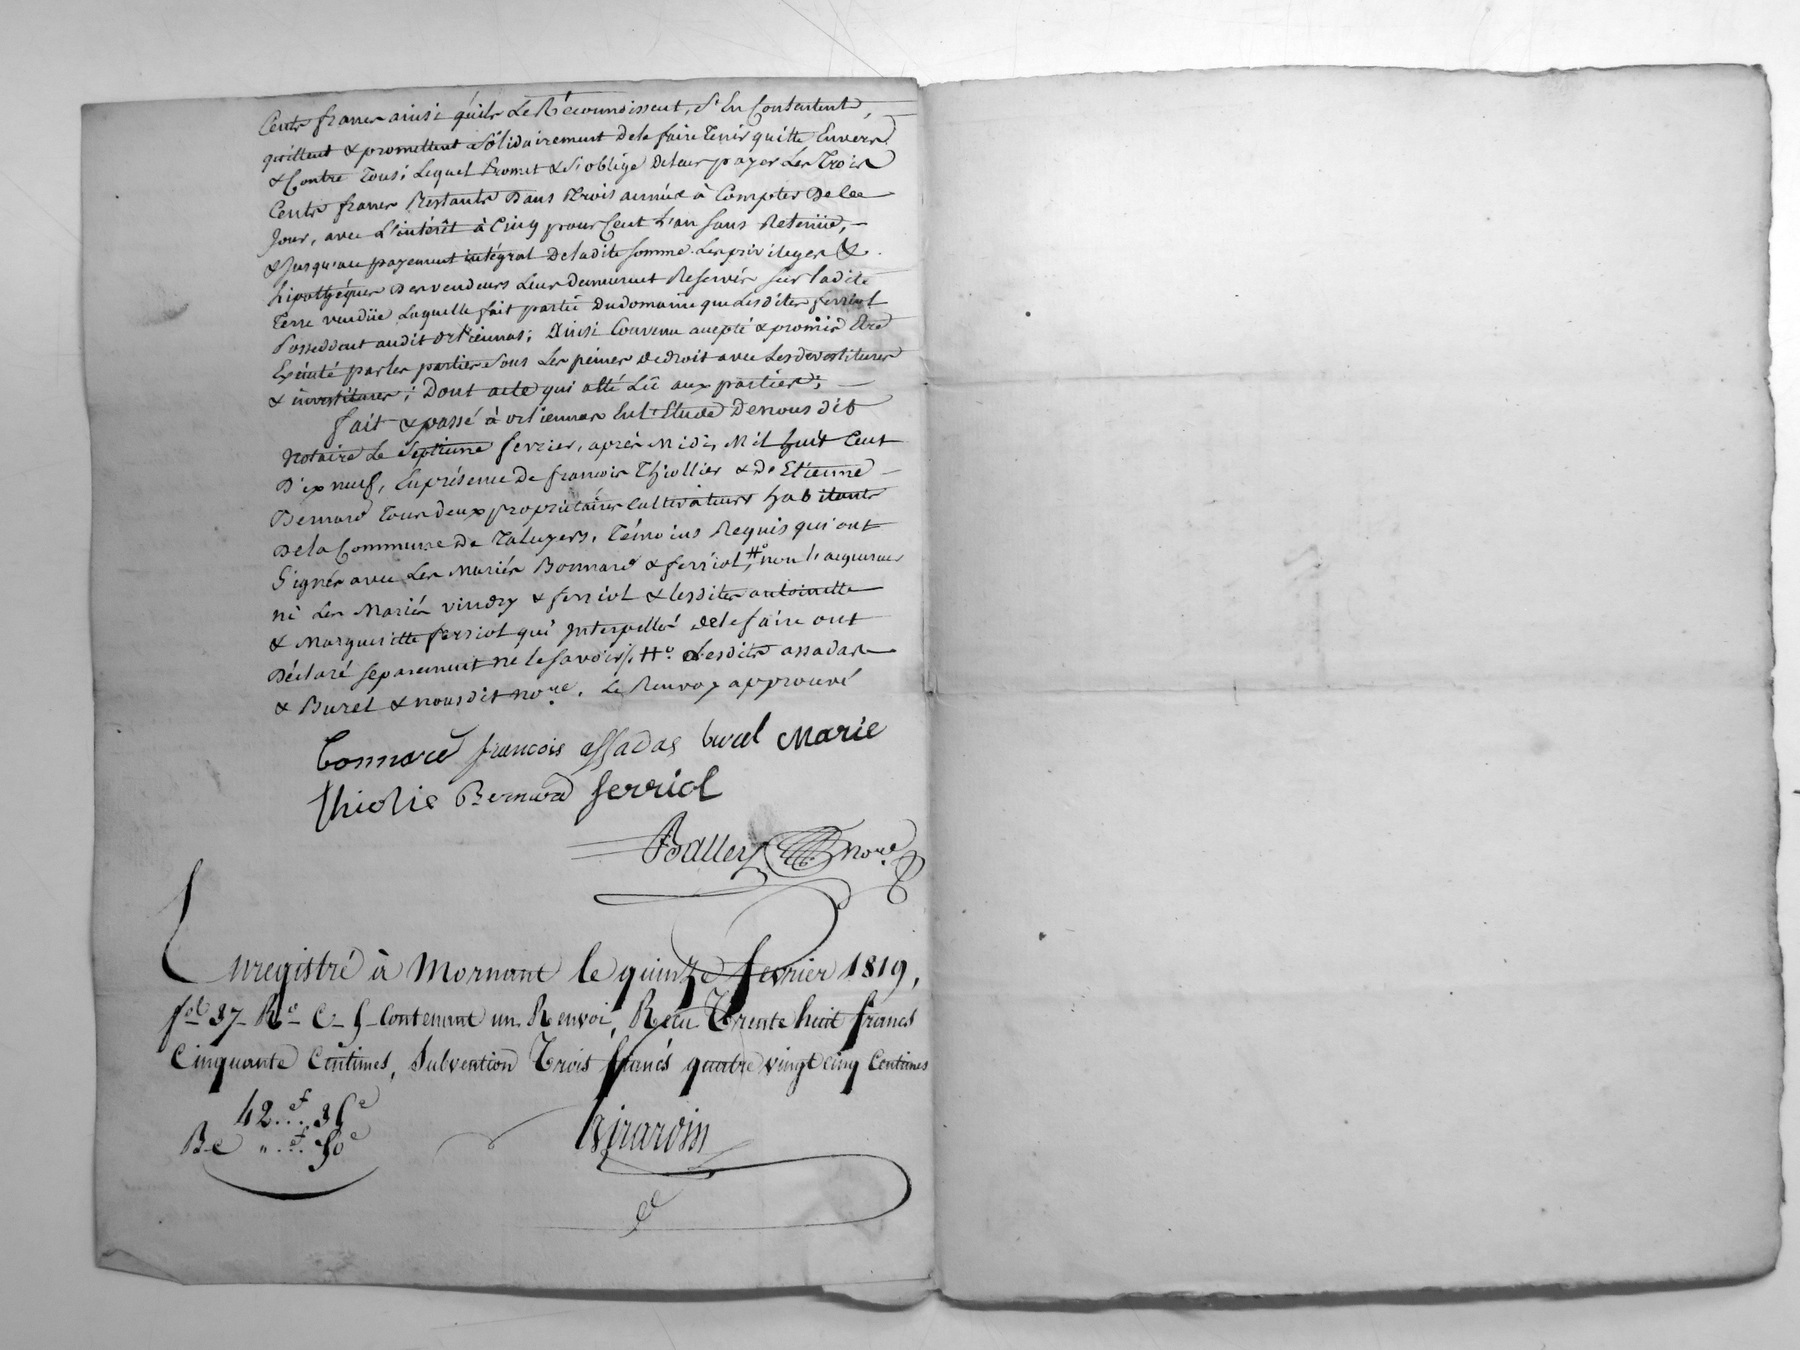 Cents francs ainsi qu'ils Le Réconnoissent, s'En Contentent,
quittent & promettent Sólidairement de le faire Tenir quitte Envers
& Contre Tous; Lequel Promet & s'oblige De Leur payer Les Trois
Cents francs Restants Dans Trois année à Compter De Ce
Jour, avec L'intérêt à Cinq pour Cent L'an sans Retenüe,
& Jusqu'au payement intégral De ladite somme Les privileges &
hipothéques Des vendeurs Leur Demeurent Reservés sur ladite
Terre vendüe Laquelle fait partie Du domaine que Lesdites ferriol
Possedent audit Orliennas; Ainsi Convenu accepté & promis Etre
Exécuté par les parties Sous Les peines De droit avec Les devestitures
& investitures; Dont acte qui a été Lû aux parties;
fait & passé à orliennas En L'Etude De nous dit
Notaire Le Septieme fevrier, après Midi, Mil huit Cent
Dix neuf, En présence De françois Thiollier & De Etienne
Bernard Tous deux propriétaires Cultivateurs habitants
De la Commune De Taluyers, Témoins Requis qui ont
Signés avec Les Mariés Bonnard & ferriol, #° non l'acquereur
ni Les Mariés vindry & ferriol & lesdites antoinette
& Marguerite ferriol qui Interpellés de le faire ont
Déclaré séparement ne le savoir/. #° Lesdits assadas
& Burel & nous dit no.re. Le Renvoy approuvé
bonnard francois assadas burel Marie
thiolie Bernard ferriol
Balley no.re
Enregistré à Mornant le quinze fevrier 1819,
fol. 37 Ro C. 5 Contenant un Renvoi, Recu Trente huit francs
Cinquante Centimes, Subvention Trois francs quatre vingt cinq Centimes
42.f..35c
Be „.f.50c
Girardin